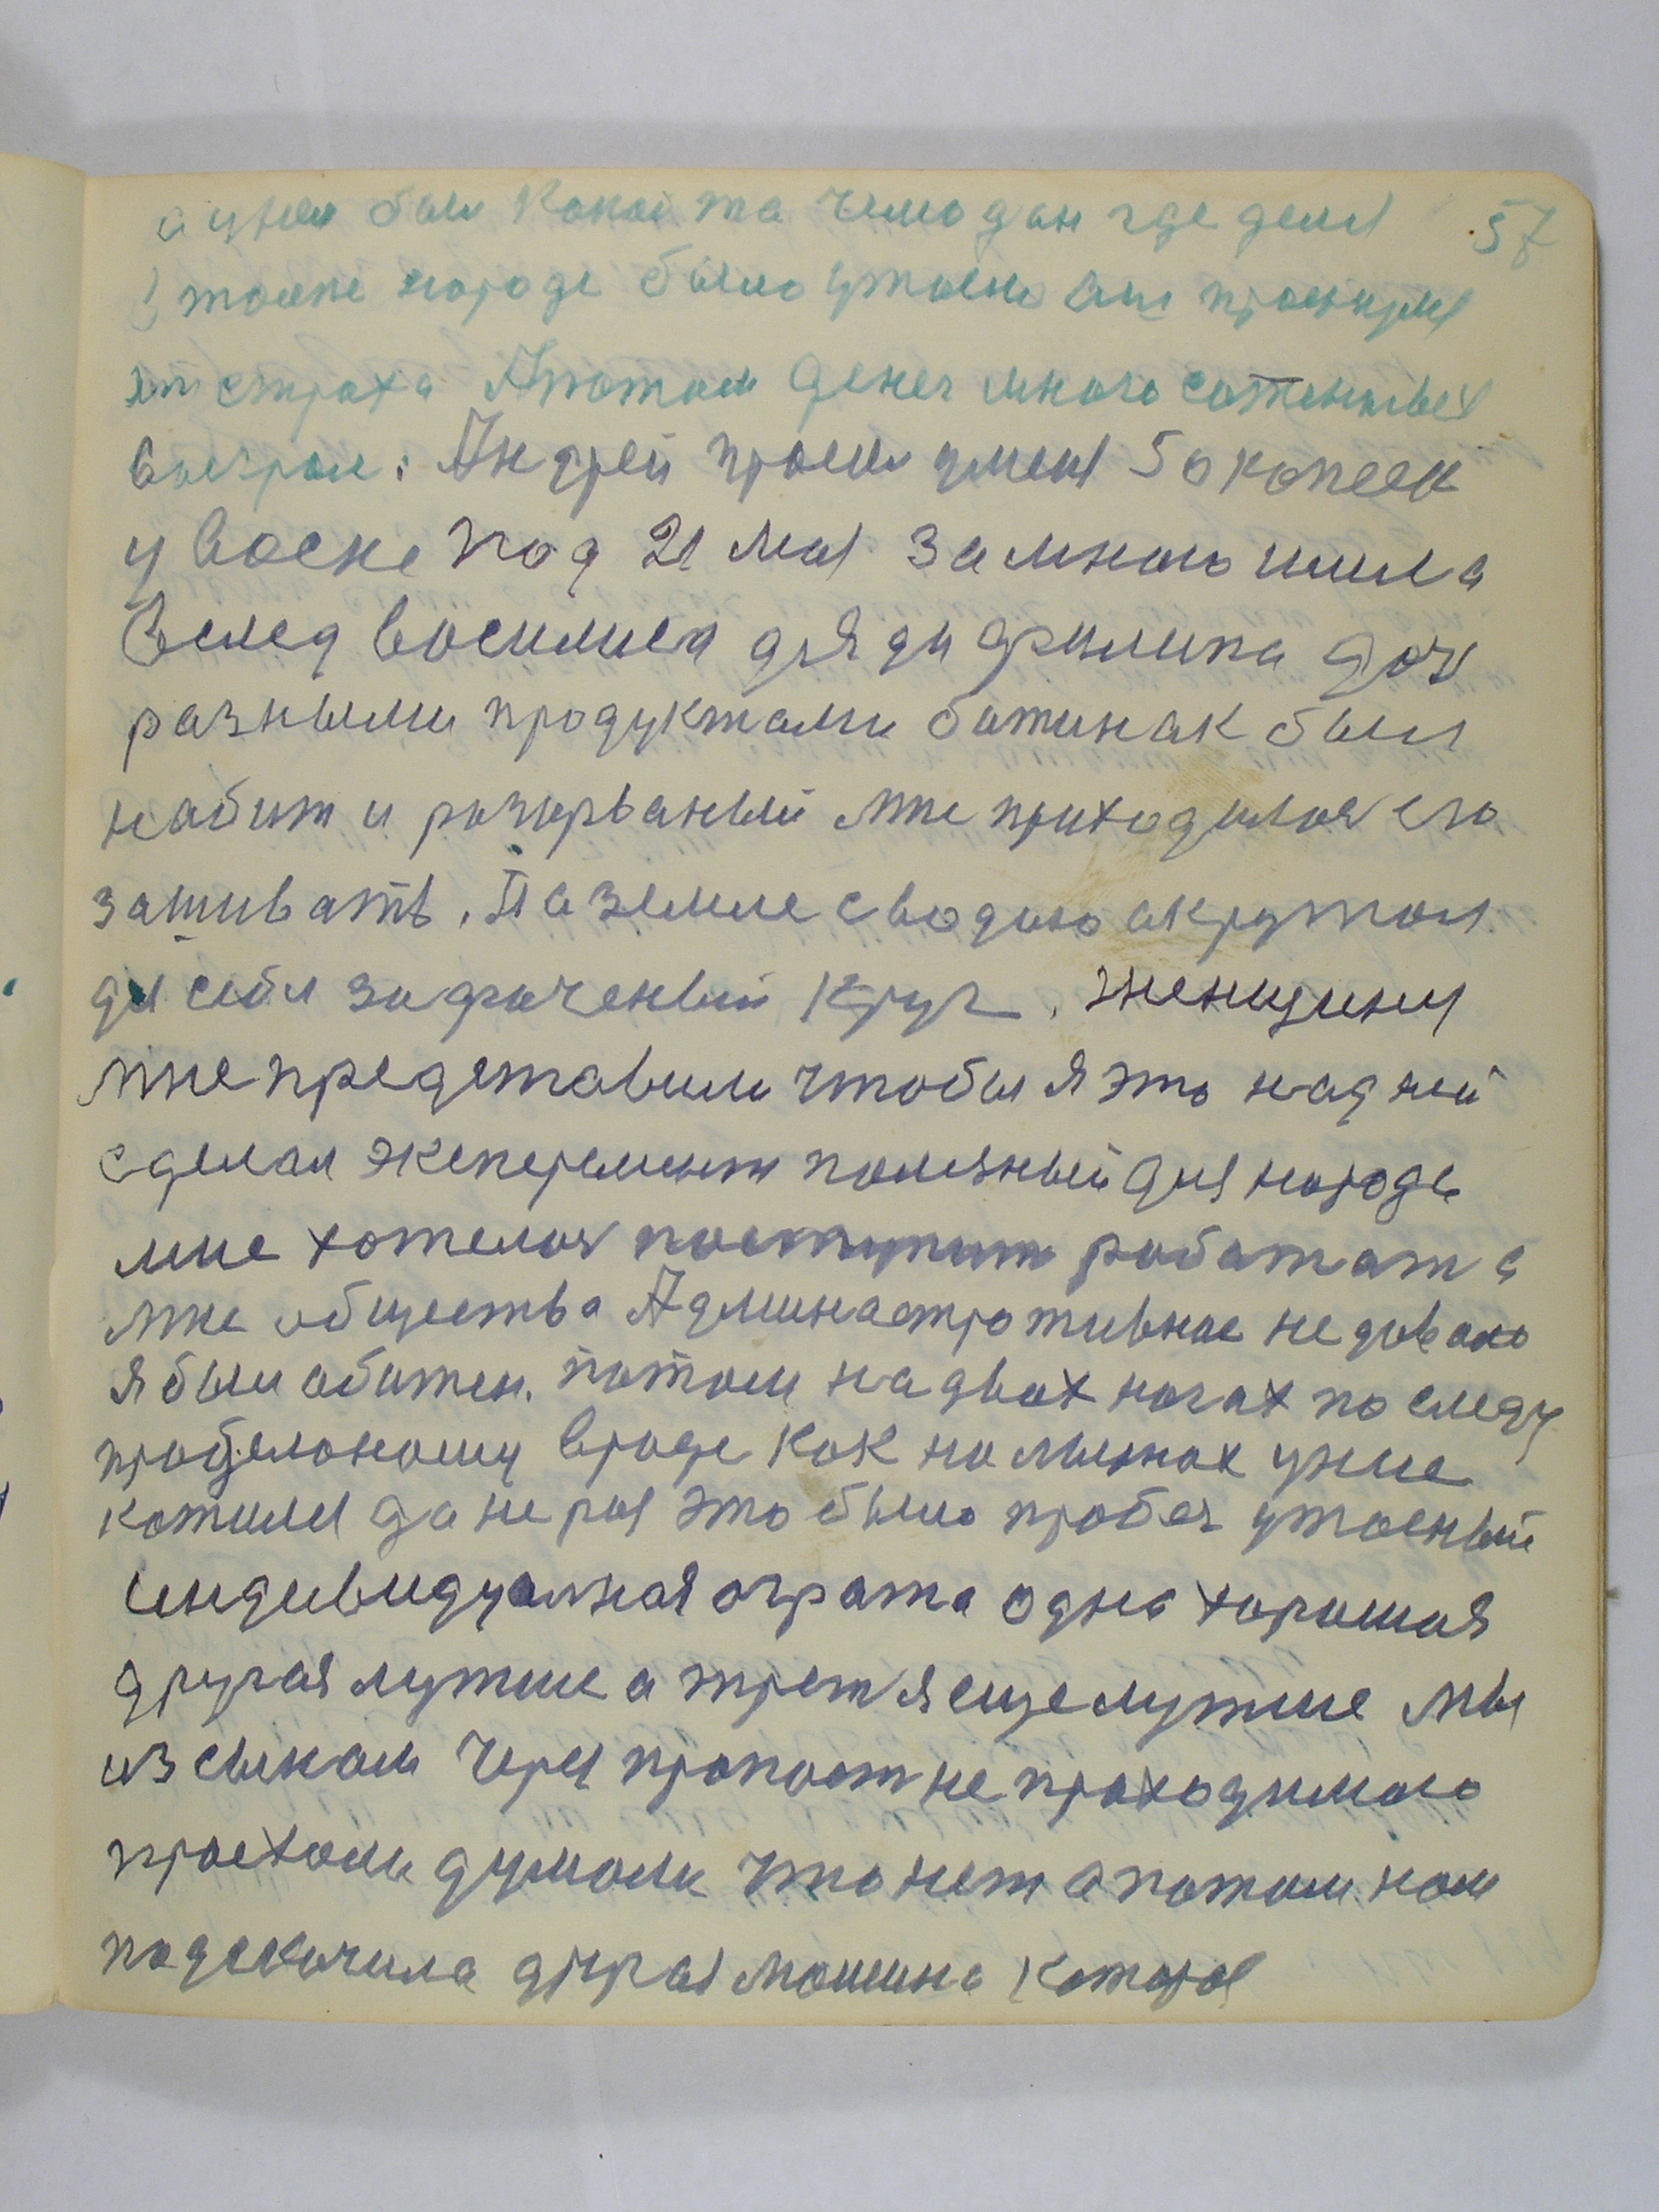 а унем был Какой та чемодан где деля 57
В толпе народе было ужасно аш проснулся
от страха Апотом денег много сотеных
выиграл: Андрей просил уменя 50 копеек
у Васке под 21 Мая за мною шила
Вслед Восилиса дяди филипа Доч
разными продуктами ботинак был
набит и разорваный Мне приходилося его
зашивать. На земле сводию акружол
для себя зафаченый круг. Женщину
Мне представили чтобы я это над ней
сделал эксперемент полезный для народа
мне хотелося поступит работат а
Мне общества Админастротивное не давало
я был абижен. потом на двох ногах по следу
проделоному вроде как на лыжах уже
котился да не раз это было пробег ужасный
индивидуалная аграта одна хорошая
другая лутше а трет я еще лутше Мы
из сынам Через пропаст не проходимаю
проехали думали что нет а потом нам
подскочила другая Машина Которая